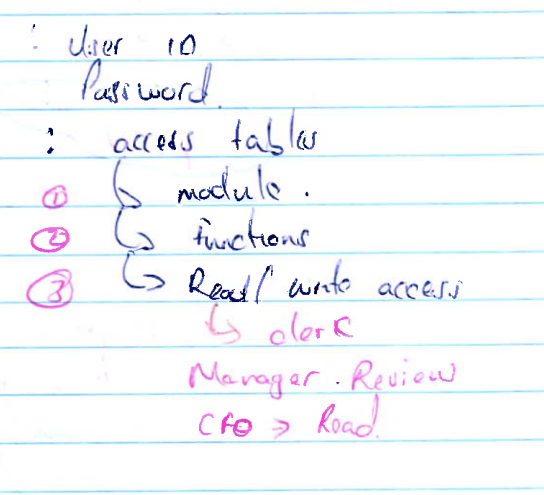 : User ID
Password.
: access tables
① ↳ module.
② ↳ functions
③ ↳ Read/write access
↳ clerk
Manager. Review
CFO → Read.